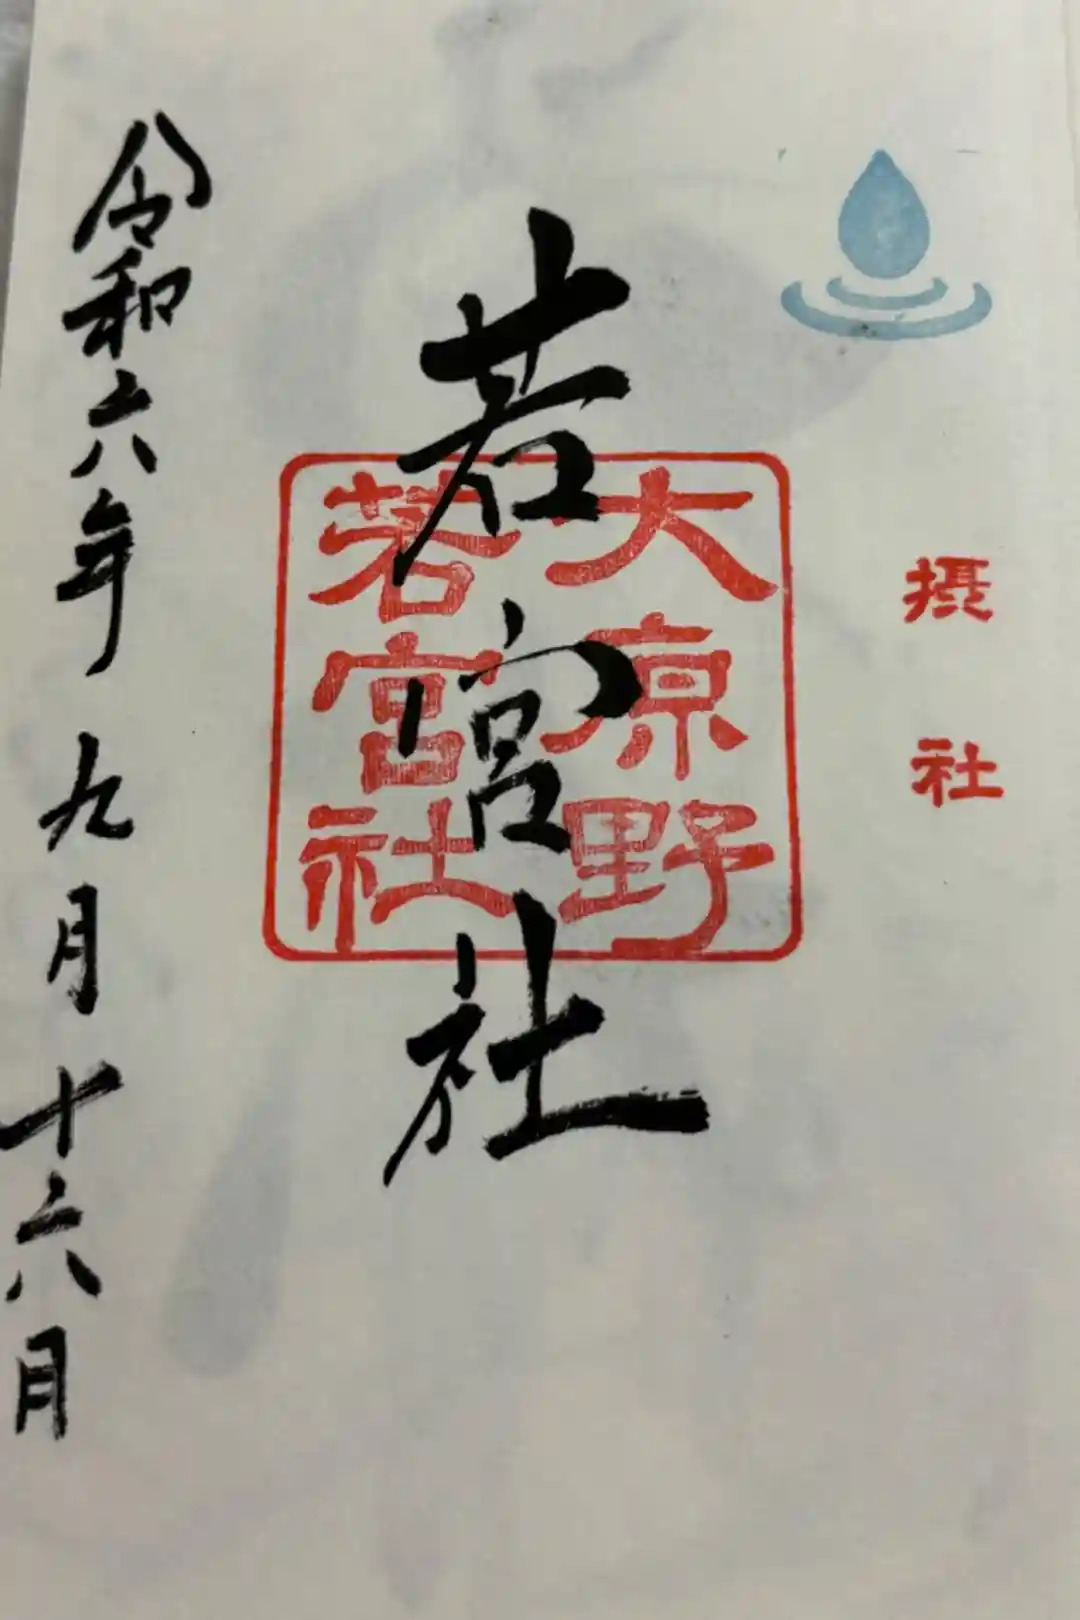 摂社
若宮社
大原野
若宮社
令和六年九月十六日